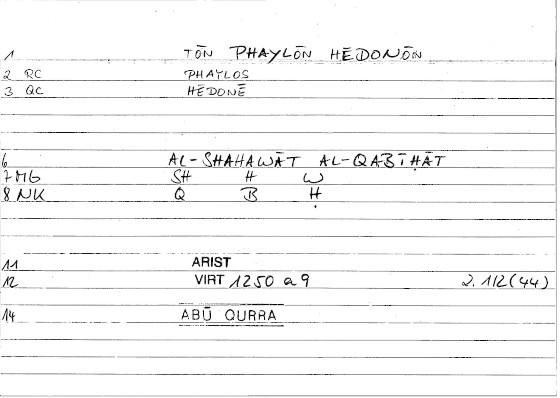 1 TŌN PHAYLŌN HĒDONŌN
2 RC PHAYLOS
3 QC HĒDONĒ
6 AL-SHAHAWĀT AL-QABĪḤĀT
7 MG SH H W
8 NK Q B Ḥ
11 ARIST
12 VIRT 1250 a 9 2.112(44)
14 ABŪ QURRA